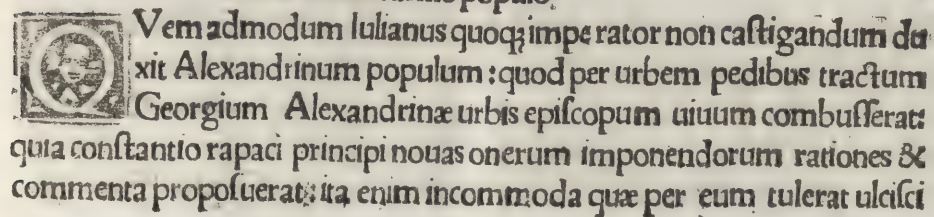 QVemadmodum Iulianus quoqꝫ impe rator non caſtigandum du
xit Alexandrinum populum : quod per urbem pedibus tractum
Georgium Alexandrinæ urbis epiſcopum uiuum combuſſerat:
quia conſtantio rapaci principi nouas onerum imponendorum rationes &
commenta propoſuerat: ita enim incommoda quæ per eum tulerat ulciſci